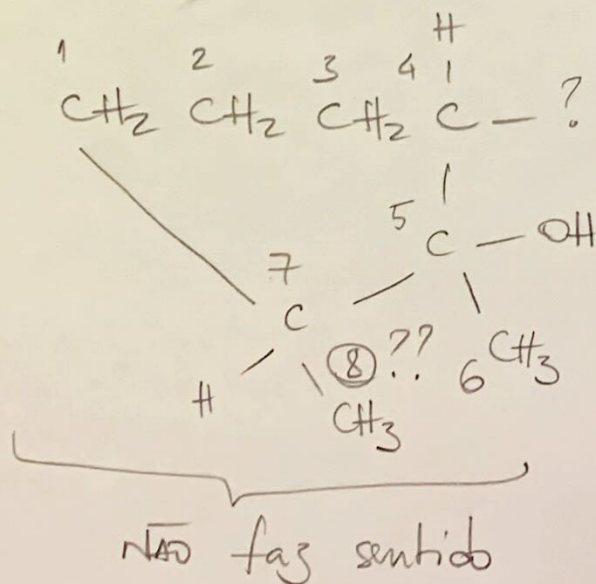 H
1 2 3 4
CH₂ CH₂ CH₂ C — ?
5
C — OH
7
C
H
⑧ ??
CH₃
6 CH₃
NÃO faz sentido